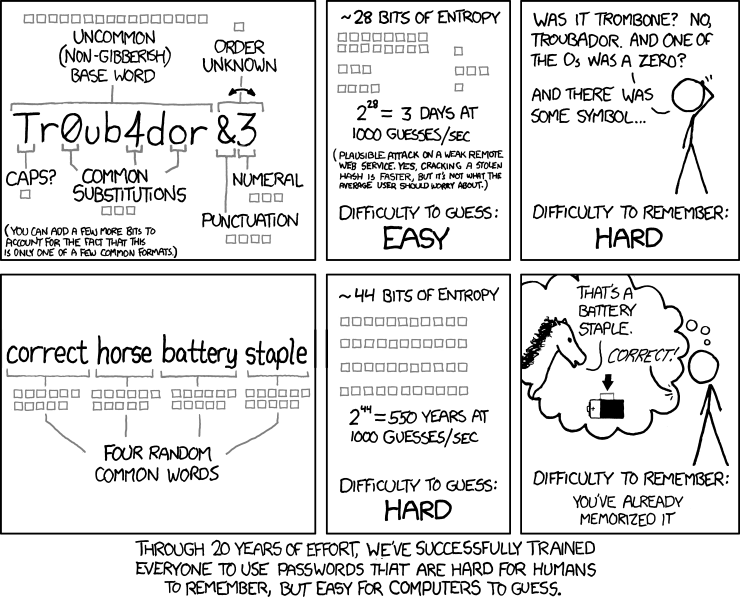 UNCOMMON
(NON-GIBBERISH)
BASE WORD
ORDER
UNKNOWN
Tr0ub4dor &3
CAPS?
COMMON
SUBSTITUTIONS
NUMERAL
PUNCTUATION
(YOU CAN ADD A FEW MORE BITS TO
ACCOUNT FOR THE FACT THAT THIS
IS ONLY ONE OF A FEW COMMON FORMATS.)
~28 BITS OF ENTROPY
2^28 = 3 DAYS AT
1000 GUESSES/SEC
(PLAUSIBLE ATTACK ON A WEAK REMOTE
WEB SERVICE. YES, CRACKING A STOLEN
HASH IS FASTER, BUT IT'S NOT WHAT THE
AVERAGE USER SHOULD WORRY ABOUT.)
DIFFICULTY TO GUESS:
EASY
WAS IT TROMBONE? NO,
TROUBADOR. AND ONE OF
THE Os WAS A ZERO?
AND THERE WAS
SOME SYMBOL...
DIFFICULTY TO REMEMBER:
HARD
correct horse battery staple
FOUR RANDOM
COMMON WORDS
~44 BITS OF ENTROPY
2^44 = 550 YEARS AT
1000 GUESSES/SEC
DIFFICULTY TO GUESS:
HARD
THAT'S A
BATTERY
STAPLE.
CORRECT!
DIFFICULTY TO REMEMBER:
YOU'VE ALREADY
MEMORIZED IT
THROUGH 20 YEARS OF EFFORT, WE'VE SUCCESSFULLY TRAINED
EVERYONE TO USE PASSWORDS THAT ARE HARD FOR HUMANS
TO REMEMBER, BUT EASY FOR COMPUTERS TO GUESS.